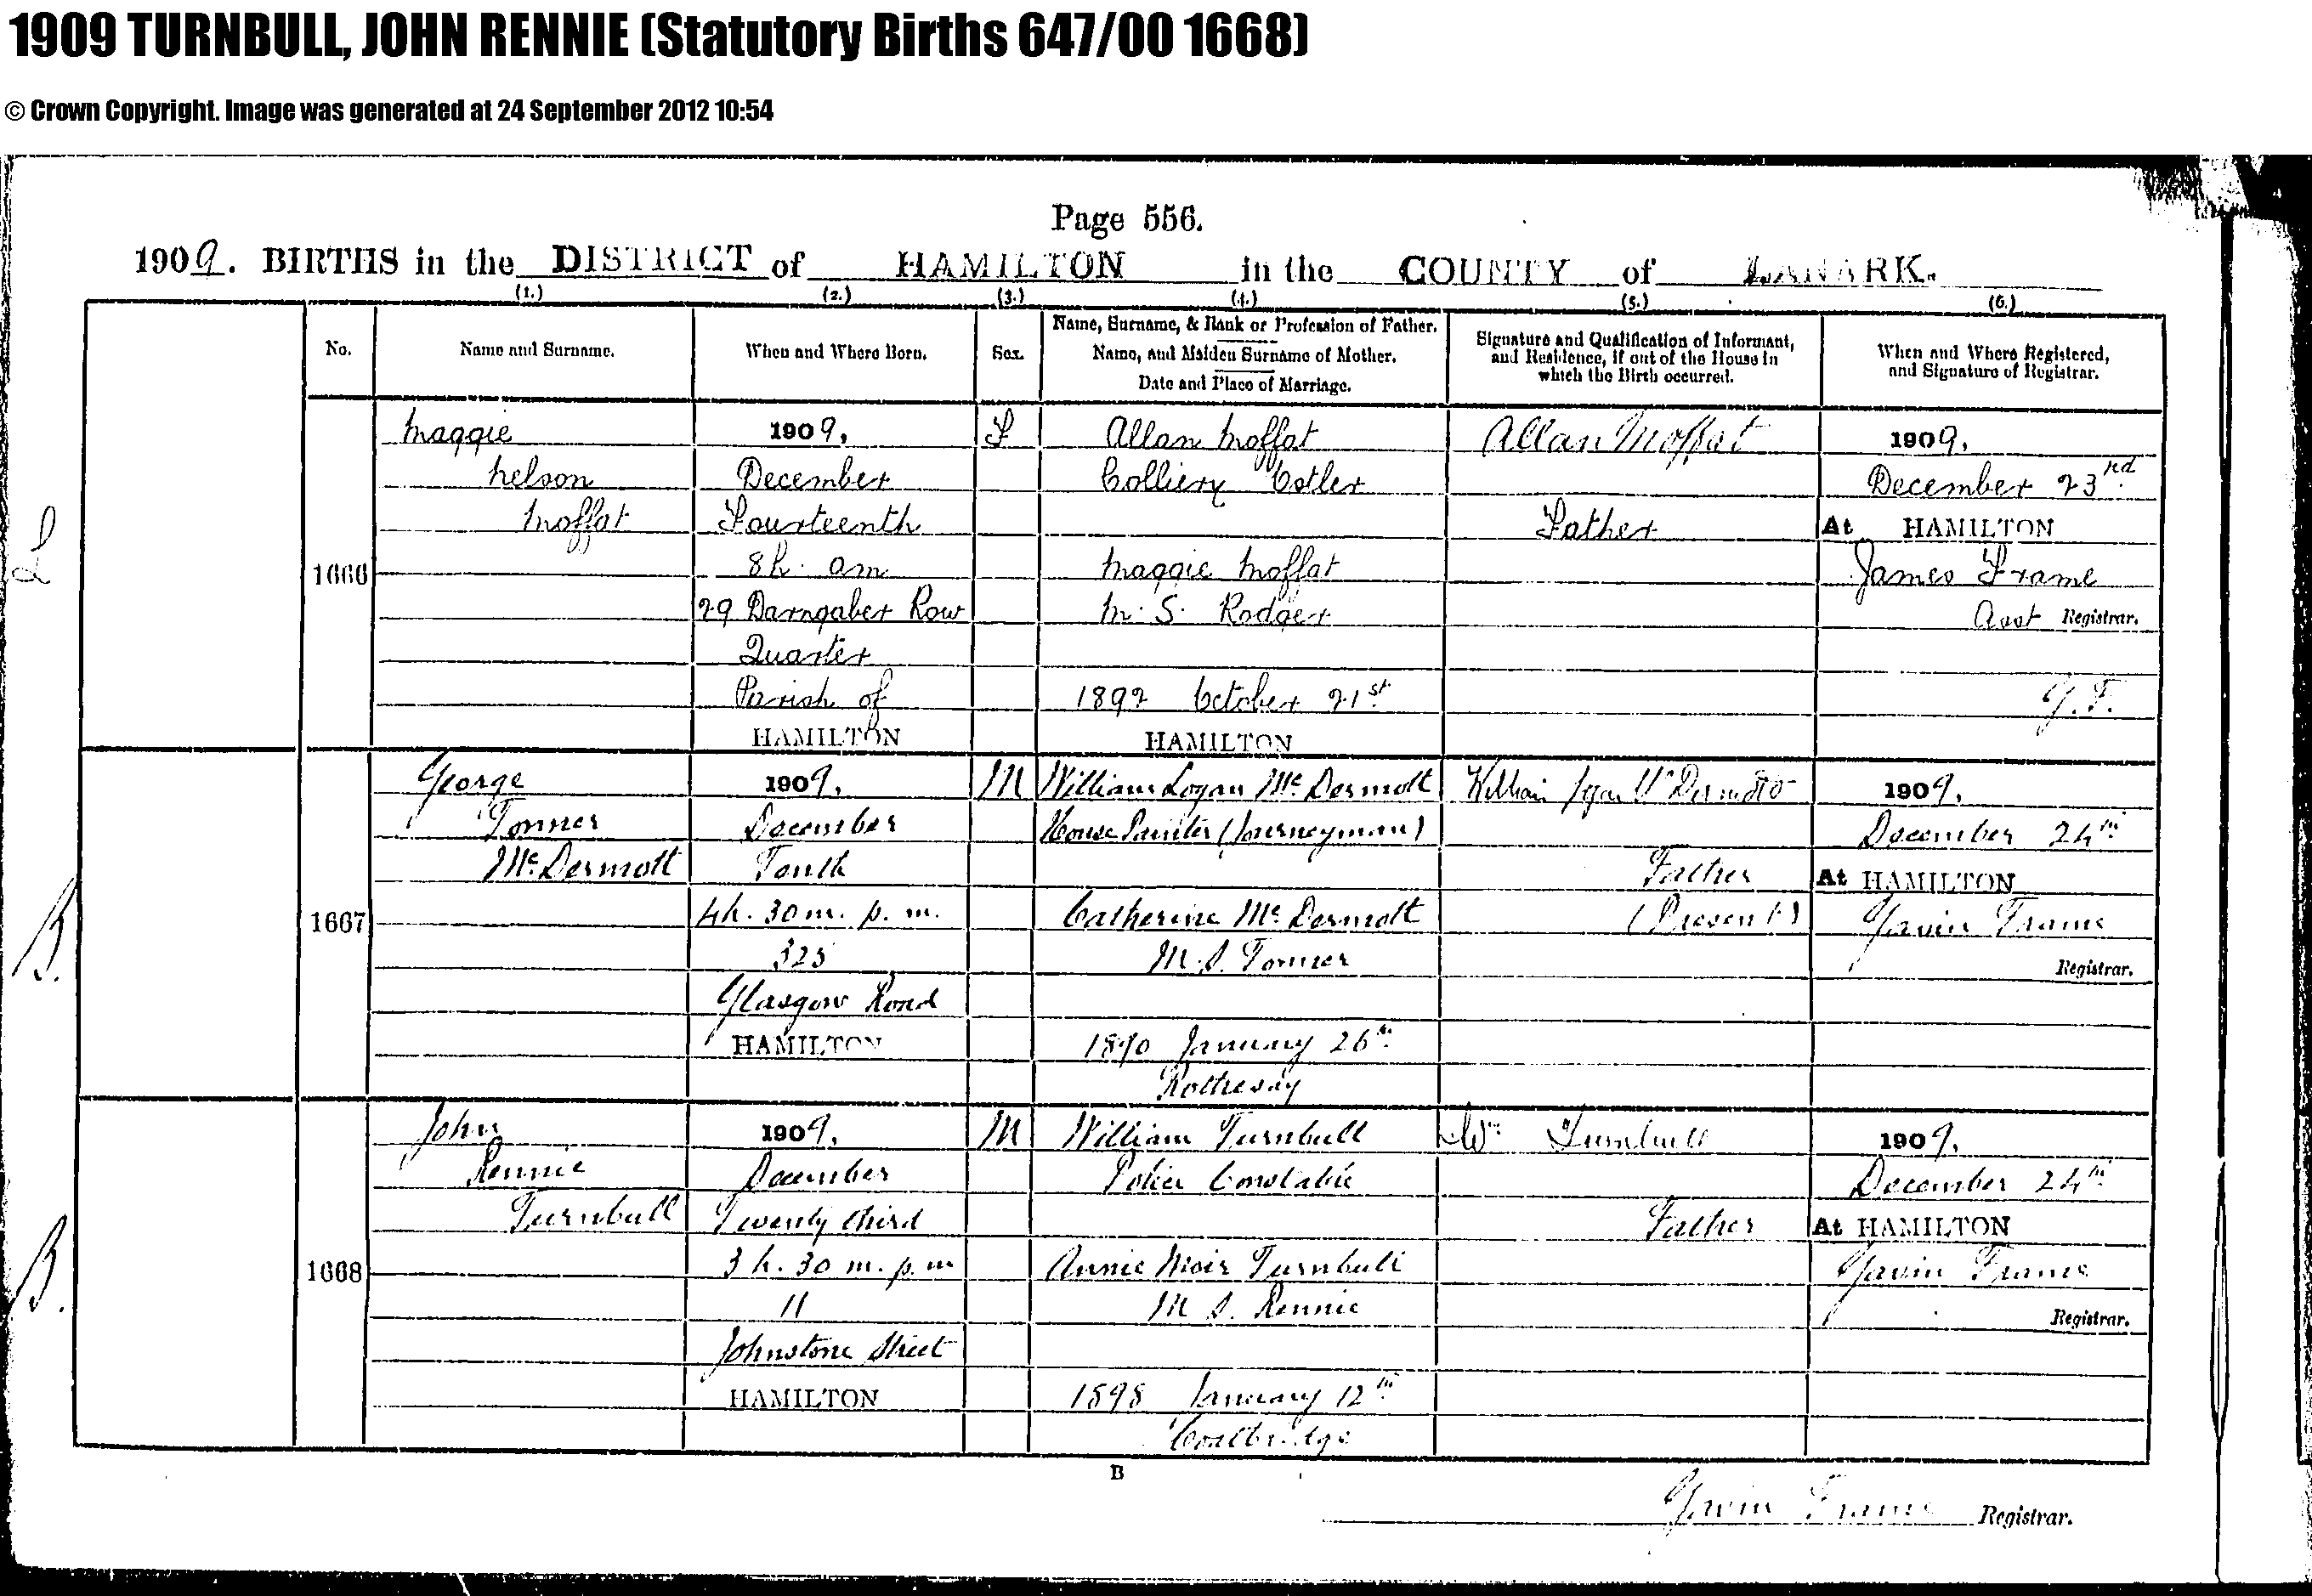 1909 TURNBULL, JOHN RENNIE (Statutory Births 647/00 1668)
© Crown Copyright. Image was generated at 24 September 2012 10:54
Page 556.
1909. BIRTHS in the DISTRICT of HAMILTON in the COUNTY of LANARK.
(1.) (2.) (3.) (4.) (5.) (6.)
No.
Name and Surname.
When and Where Born.
Sex.
Name, Surname, & Rank or Profession of Father.
Name, and Maiden Surname of Mother.
Date and Place of Marriage.
Signature and Qualification of Informant,
and Residence, if out of the House in
which the Birth occurred.
When and Where Registered,
and Signature of Registrar.
L
1666
Maggie
Nelson
Moffat
1909,
December
Fourteenth
8h. am
29 Darngaber Row
Quarter
Parish of
HAMILTON
F
Allan Moffat
Colliery Ostler
Maggie Moffat
M. S. Rodger
1892 October 21st
HAMILTON
Allan Moffat
Father
1909,
December 23rd
At HAMILTON
James Frame
Asst Registrar.
G.F.
B.
1667
George
Tonner
McDermott
1909,
December
Tenth
4h. 30m. p.m.
325
Glasgow Road
HAMILTON
M
William Logan McDermott
House Painter (Journeyman)
Catherine McDermott
M.S. Tonner
January 26th
Rothesay
William Logan McDermott
Father
(Present)
1909,
December 24th
At HAMILTON
Gavin Frame
Registrar.
B.
1668
John
Rennie
Turnbull
1909,
December
Twenty third
3 h. 30 m. p.m
11
Johnstone Street
HAMILTON
M
William Turnbull
Police Constable
Annie Moir Turnbull
M S. Rennie
1898 January 12th
Coatbridge
Wm Turnbull
Father
1909,
December 24th
At HAMILTON
Gavin Frame
Registrar.
B
Gavin Frame Registrar.